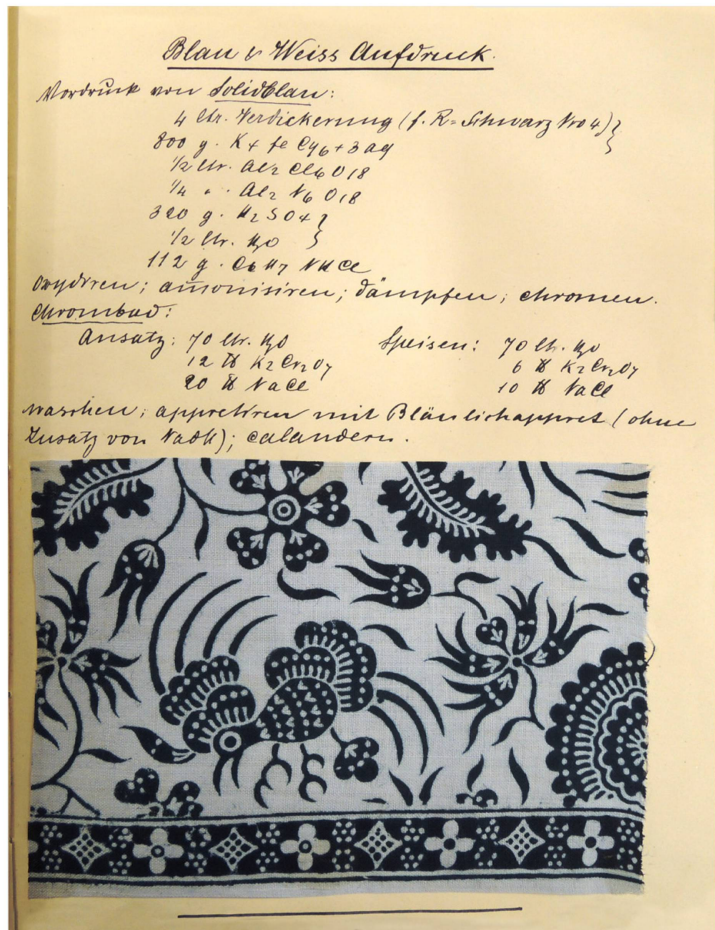 Blau & Weiss Aufdruck.
Vordruck von Solidblau:
4 Ltr. Verdickerung (f. R=Schwarz Nro 4)
800 g. K4 fe Cy6 + 3 aq
1/2 Ltr. Al2 Cl6 O18
1/4 " . Al2 N6 O18
320 g. H2 SO4
1/2 Ltr. H2O
112 g. C6 H7 NHCl
oxydiren; amonisiren; dämpfen; chromen.
Chrombad:
Ansatz: 70 Ltr. H2O Speisen: 70 Lt. H2O
12 ℔ K2Cr2O7 6 ℔ K2Cr2O7
20 ℔ NaCl 10 ℔ NaCl
waschen; appretiren mit Bläulichappret (ohne
Zusatz von); calandern.